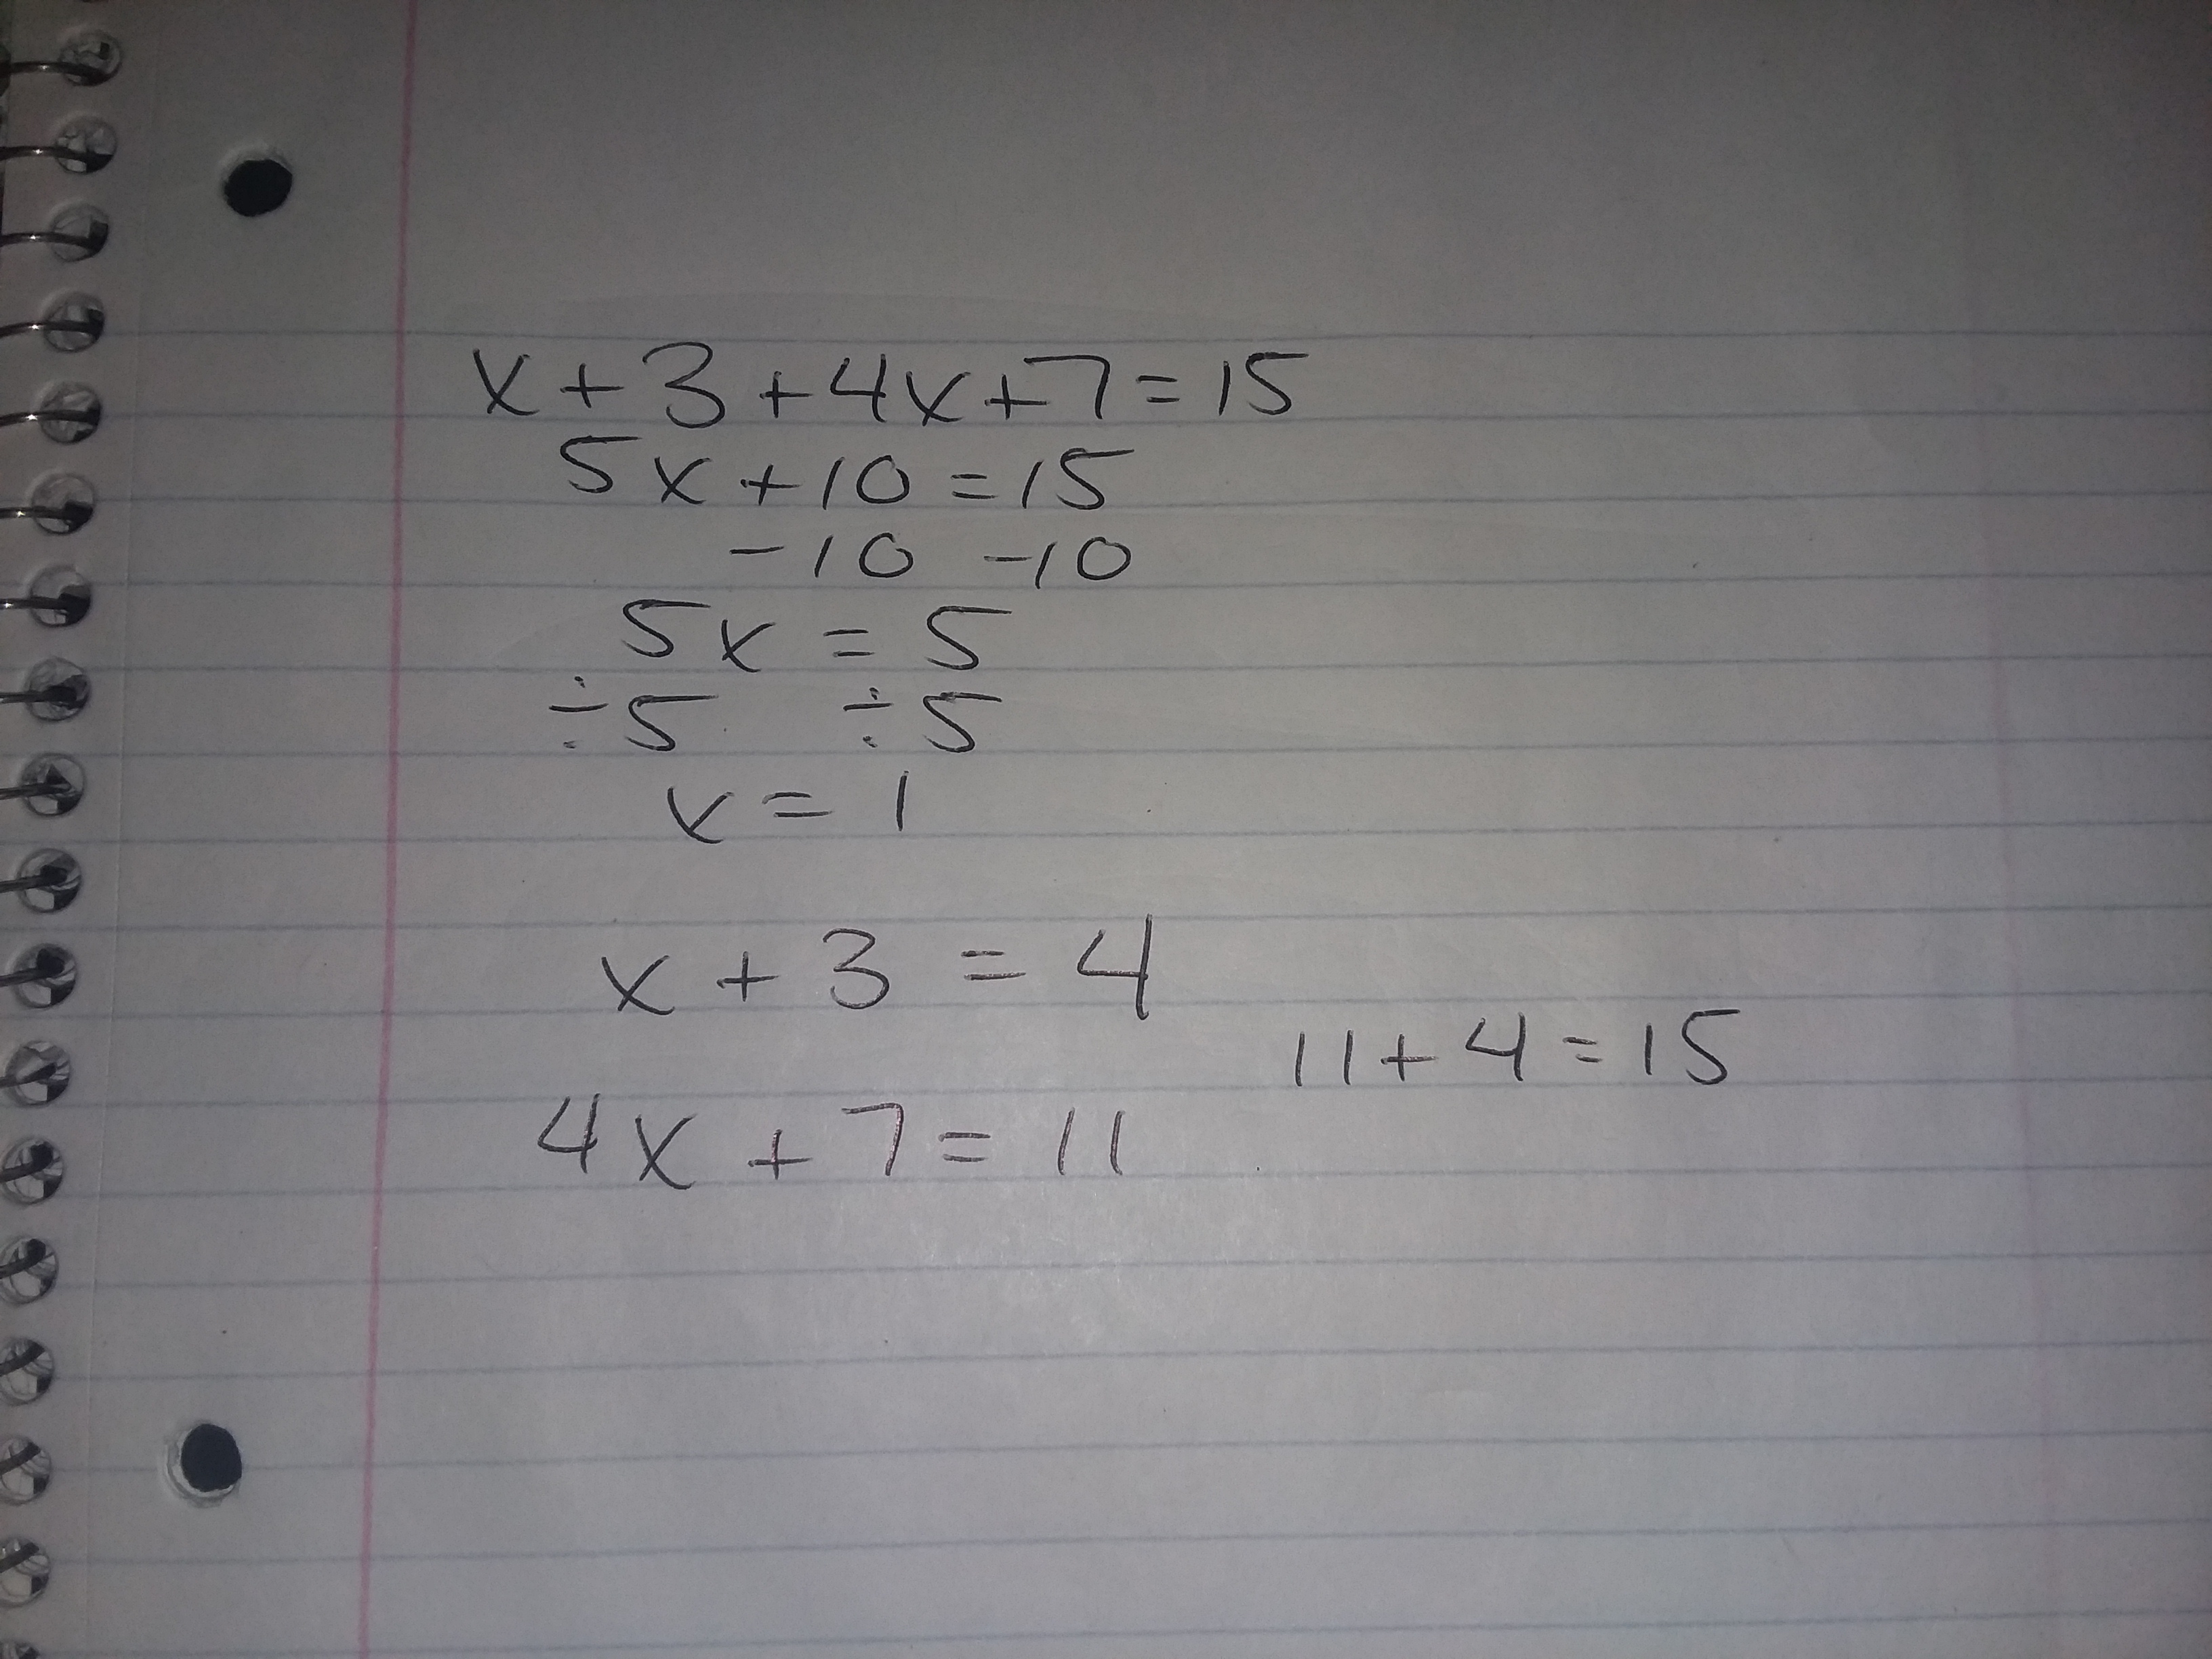 x + 3 + 4x + 7 = 15
5x + 10 = 15
- 10 - 10
5x = 5
÷ 5 ÷ 5
x = 1
x + 3 = 4
11 + 4 = 15
4x + 7 = 11